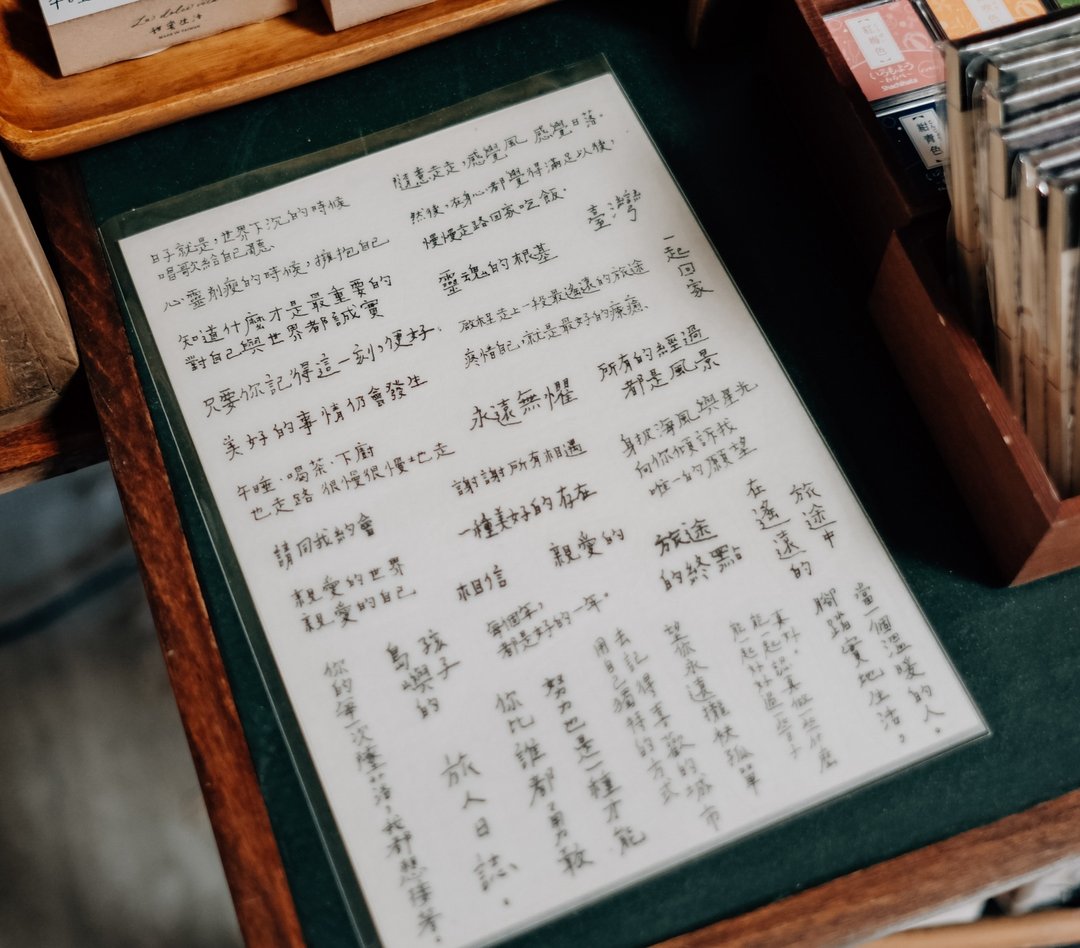 La dolce vita
甜蜜生活
MADE IN TAIWAN
日子就是，世界下沉的時候
唱歌給自己聽.
心靈削瘦的時候，擁抱自己
知道什麼才是最重要的
對自己與世界都誠實
只要你記得這一刻，便好.
美好的事情仍會發生
午睡.喝茶.下廚
也走路 很慢很慢地走
請同我約會
親愛的世界
親愛的自己
隨意走走，感覺風 感覺日落。
然後，在身心都覺得滿足以後，
慢慢走路回家吃飯.
靈魂的根基
啟程走上一段最遙遠的旅途
疼惜自己，就是最好的療癒.
永遠無懼
謝謝所有相遇
一種美好的存在
相信
親愛的
每個年，
都是好的一年。
臺灣
一起回家
所有的經過
都是風景
身披海風與星光
向你傾訴我
唯一的願望
旅途
的終點
旅途中
在遙遠的
當一個溫暖的人。
腳踏實地生活，
真
能一起認真做些什麼
能一起好好過一些日子
望你永遠擺
孤單
去記得享
歡的城市
用自己獨特的方式
努力也是一種才能
你比誰都勇敢
旅人日誌。
孩子
鳥與的
你的每一次墜落，我都想接著.
紅梅色
いろもよう
わらべ
Shachihata
紺青色